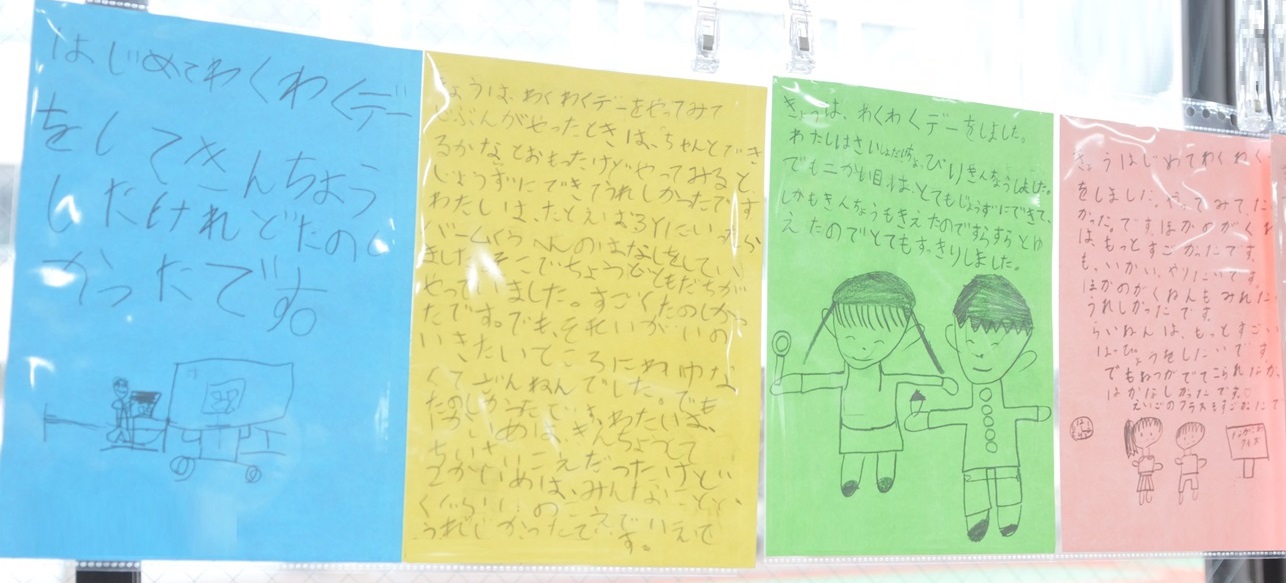 はじめてわくわくデー
をしてきんちょう
したけれどたのし
かったです。
きょうは、わくわくデーをやってみて
じぶんがやったときは、ちゃんとでき
るかなとおもったけどやってみると、
じょうずにできてうれしかったです
わたしは、たとえば
バームくうへんのはなしをしてい
ました。そこでちょうどともだちが
やっていました。すごくたのしかっ
たです。でも、それいがいの
いきたいところに
くてざんねんでした。でも
たのしかったです。わたしは、
いめは、きんちょうして
ちいさいこえだったけど
2かいめは、みんなに
くぐらいのこえでいえて
うれしかったです。
きょうは、わくわくデーをしました。
わたしはさいしょだけちょっぴりきんちょうしました。
でも二かい目は、とてもじょうずにできて、
しかもきんちょうもきえたのですらすらとゆ
えたのでとてもすっきりしました。
きょうはじめてわくわく
をしました。やってみて、た
かったです。ほかのがくね
は、もっとすごかったです。
も、いかい、やりたいです。
ほかのがくねんもみれた
うれしかったです
らいねんは、もっとすごい
はっぴょうをしたいです
でもねつがでてこられなか
はかなしかったです。
えいごのクラスもすごかったで
クイズ